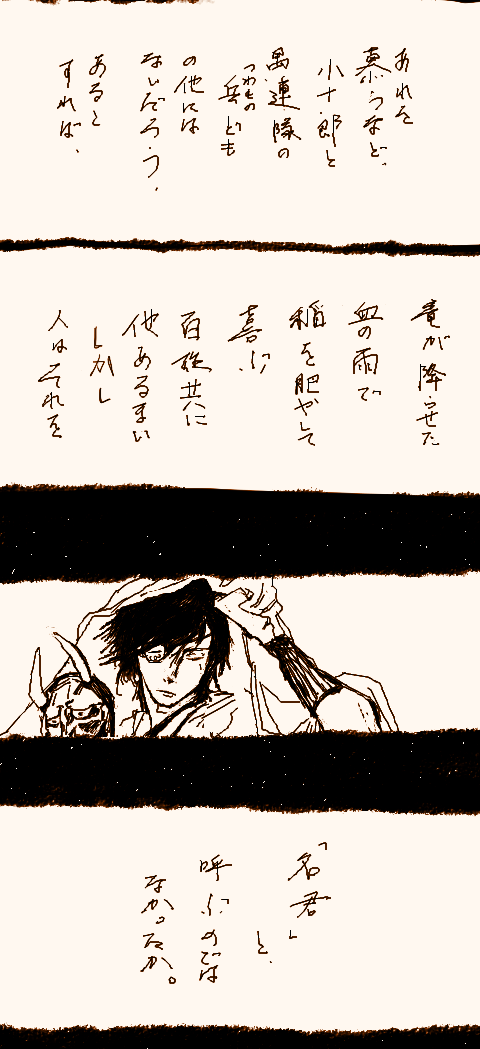 あれを
慕うなど、
小十郎と
愚連隊の
兵ども
つわもの
の他には
ないだろう、
あると
すれば、
竜が降らせた
血の雨で
稲を肥やして
喜ぶ
百姓共に
他あるまい
しかし
人はそれを
「名君」
と、
呼ぶのでは
なか。たか。